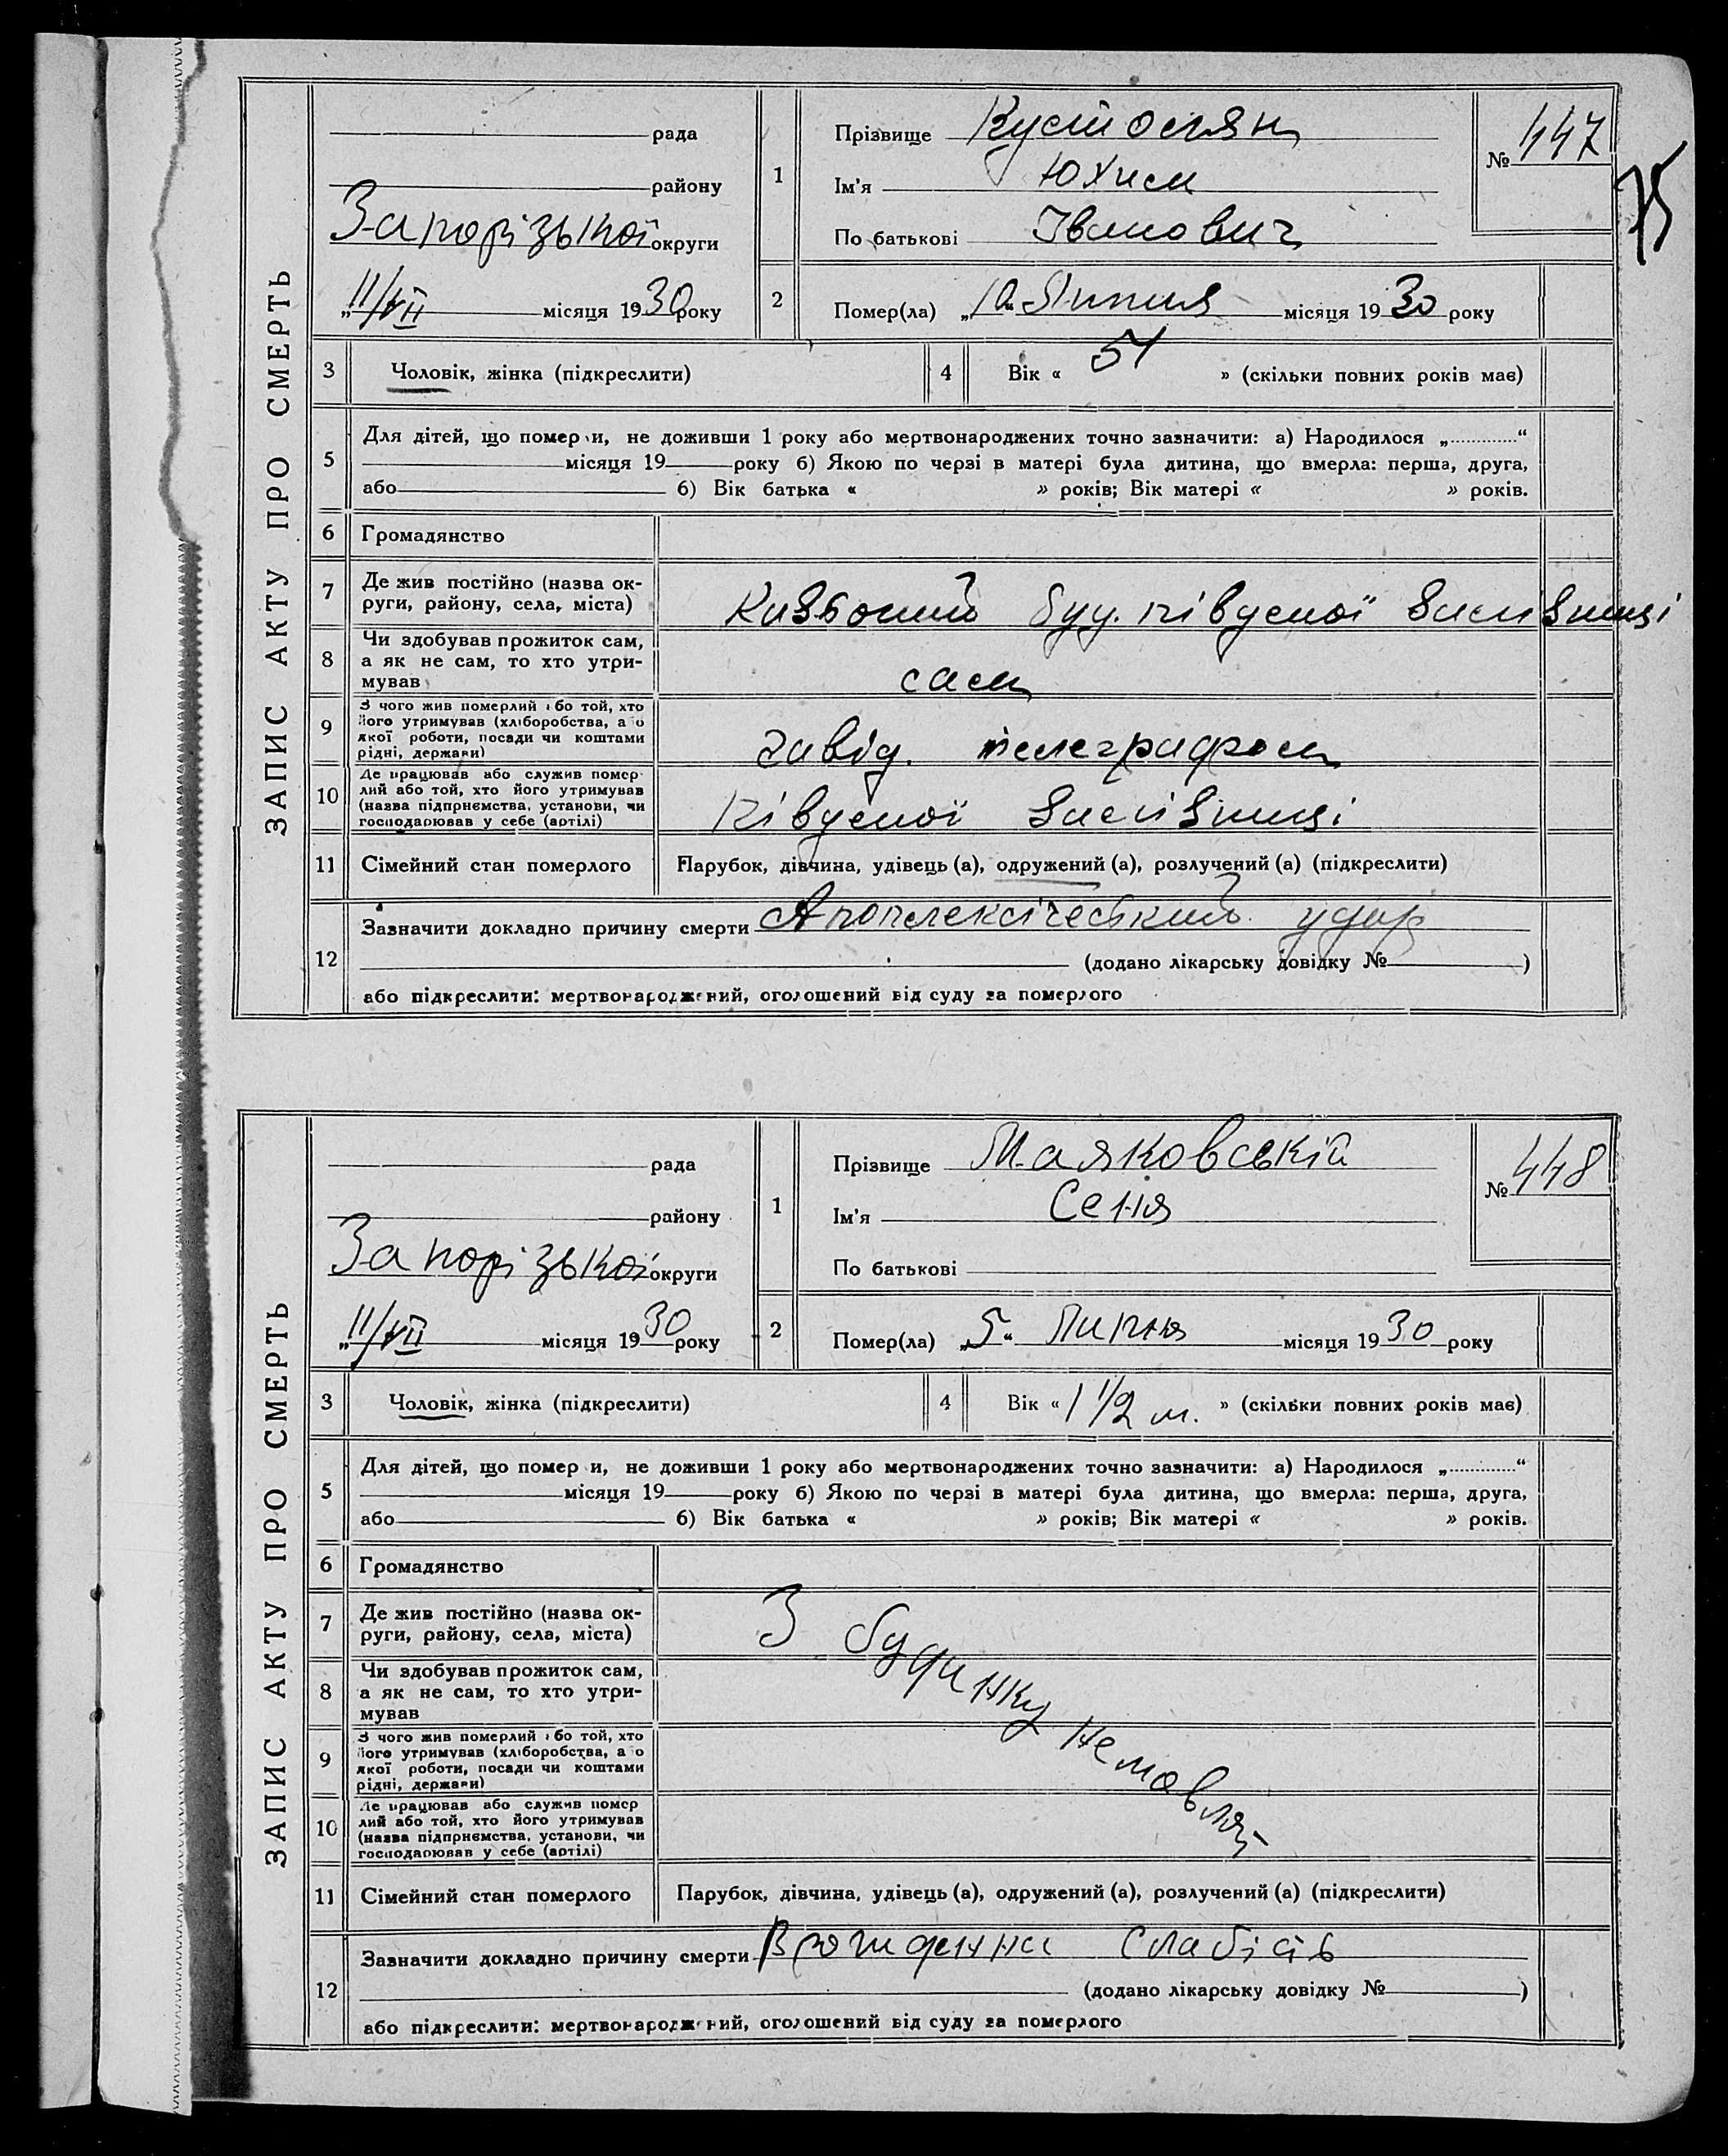 ЗАПИС АКТУ ПРО СМЕРТЬ
рада
району
Запорізької округи
„11/VII місяця 1930 року
1
Прізвище
Ім'я Юхим
По батькові Іванович
№ 447
75
2
Помер(ла) „10“ Липня місяця 1930 року
3
Чоловік, жінка (підкреслити)
4
Вік « 54 » (скільки повних років має)
5
Для дітей, що померли, не доживши 1 року або мертвонароджених точно зазначити: а) Народилося „............“
місяця 19 року б) Якою по черзі в матері була дитина, що вмерла: перша, друга,
або 6) Вік батька « » років; Вік матері « » років.
6
Громадянство
7
Де жив постійно (назва ок-
руги, району, села, міста)
буд. південої
8
Чи здобував прожиток сам,
а як не сам, то хто утри-
мував
сам
9
З чого жив померлий або той, хто
його утримував (хліборобства, або
якої роботи, посади чи коштами
рідні, держави)
завід. телеграфом
10
Де працював або служив помер
лий або той, хто його утримував
(назва підприємства, установи, чи
господарював у себе (артілі)
південої
11
Сімейний стан померлого
Парубок, дівчина, удівець (а), одружений (а), розлучений (а) (підкреслити)
12
Зазначити докладно причину смерти Апоплексічеський удар
(додано лікарську довідку № )
або підкреслити: мертвонароджений, оголошений від суду за померлого
ЗАПИС АКТУ ПРО СМЕРТЬ
рада
району
Запорізької округи
„11/VII місяця 1930 року
1
Прізвище Маяковській
Ім'я Сеня
По батькові
№ 448
2
Помер(ла) „5“ Липня місяця 1930 року
3
Чоловік, жінка (підкреслити)
4
Вік « 1 1/2 м. » (скільки повних років має)
5
Для дітей, що померли, не доживши 1 року або мертвонароджених точно зазначити: а) Народилося „............“
місяця 19 року б) Якою по черзі в матері була дитина, що вмерла: перша, друга,
або 6) Вік батька « » років; Вік матері « » років.
6
Громадянство
7
Де жив постійно (назва ок-
руги, району, села, міста)
З будинку немовлят
8
Чи здобував прожиток сам,
а як не сам, то хто утри-
мував
9
З чого жив померлий або той, хто
його утримував (хліборобства, або
якої роботи, посади чи коштами
рідні, держави)
10
Де працював або служив помер
лий або той, хто його утримував
(назва підприємства, установи, чи
господарював у себе (артілі)
11
Сімейний стан померлого
Парубок, дівчина, удівець (а), одружений (а), розлучений (а) (підкреслити)
12
Зазначити докладно причину смерти Врожденна слабість
(додано лікарську довідку № )
або підкреслити: мертвонароджений, оголошений від суду за померлого